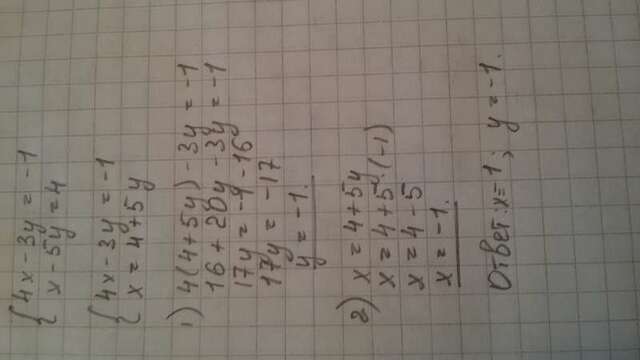 {4x - 3y = -1
x - 5y = 4
{4x - 3y = -1
x = 4 + 5y
1) 4(4+5y) - 3y = -1
16 + 20y - 3y = -1
17y = -1 - 16
17y = -17
y = -1.
2) x = 4 + 5y
x = 4 + 5·(-1)
x = 4 - 5
x = -1.
Ответ: x = -1; y = -1.